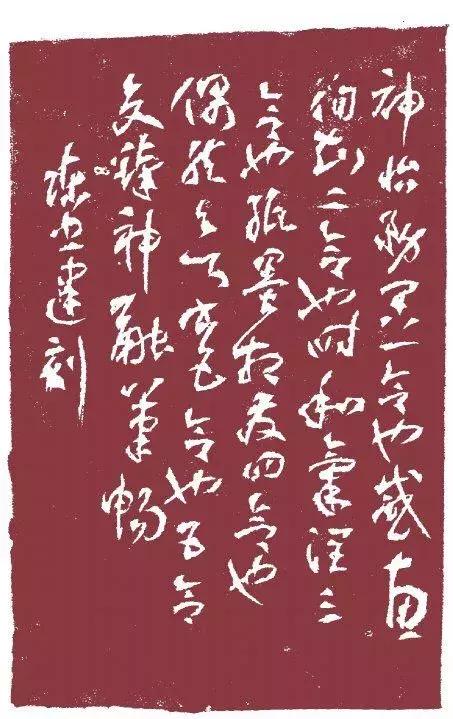 神怡務閑一合也感惠
徇知二合也時和氣潤三
合也紙墨相發四合也
偶然欲書五合也五合
交臻神融筆暢
建刻